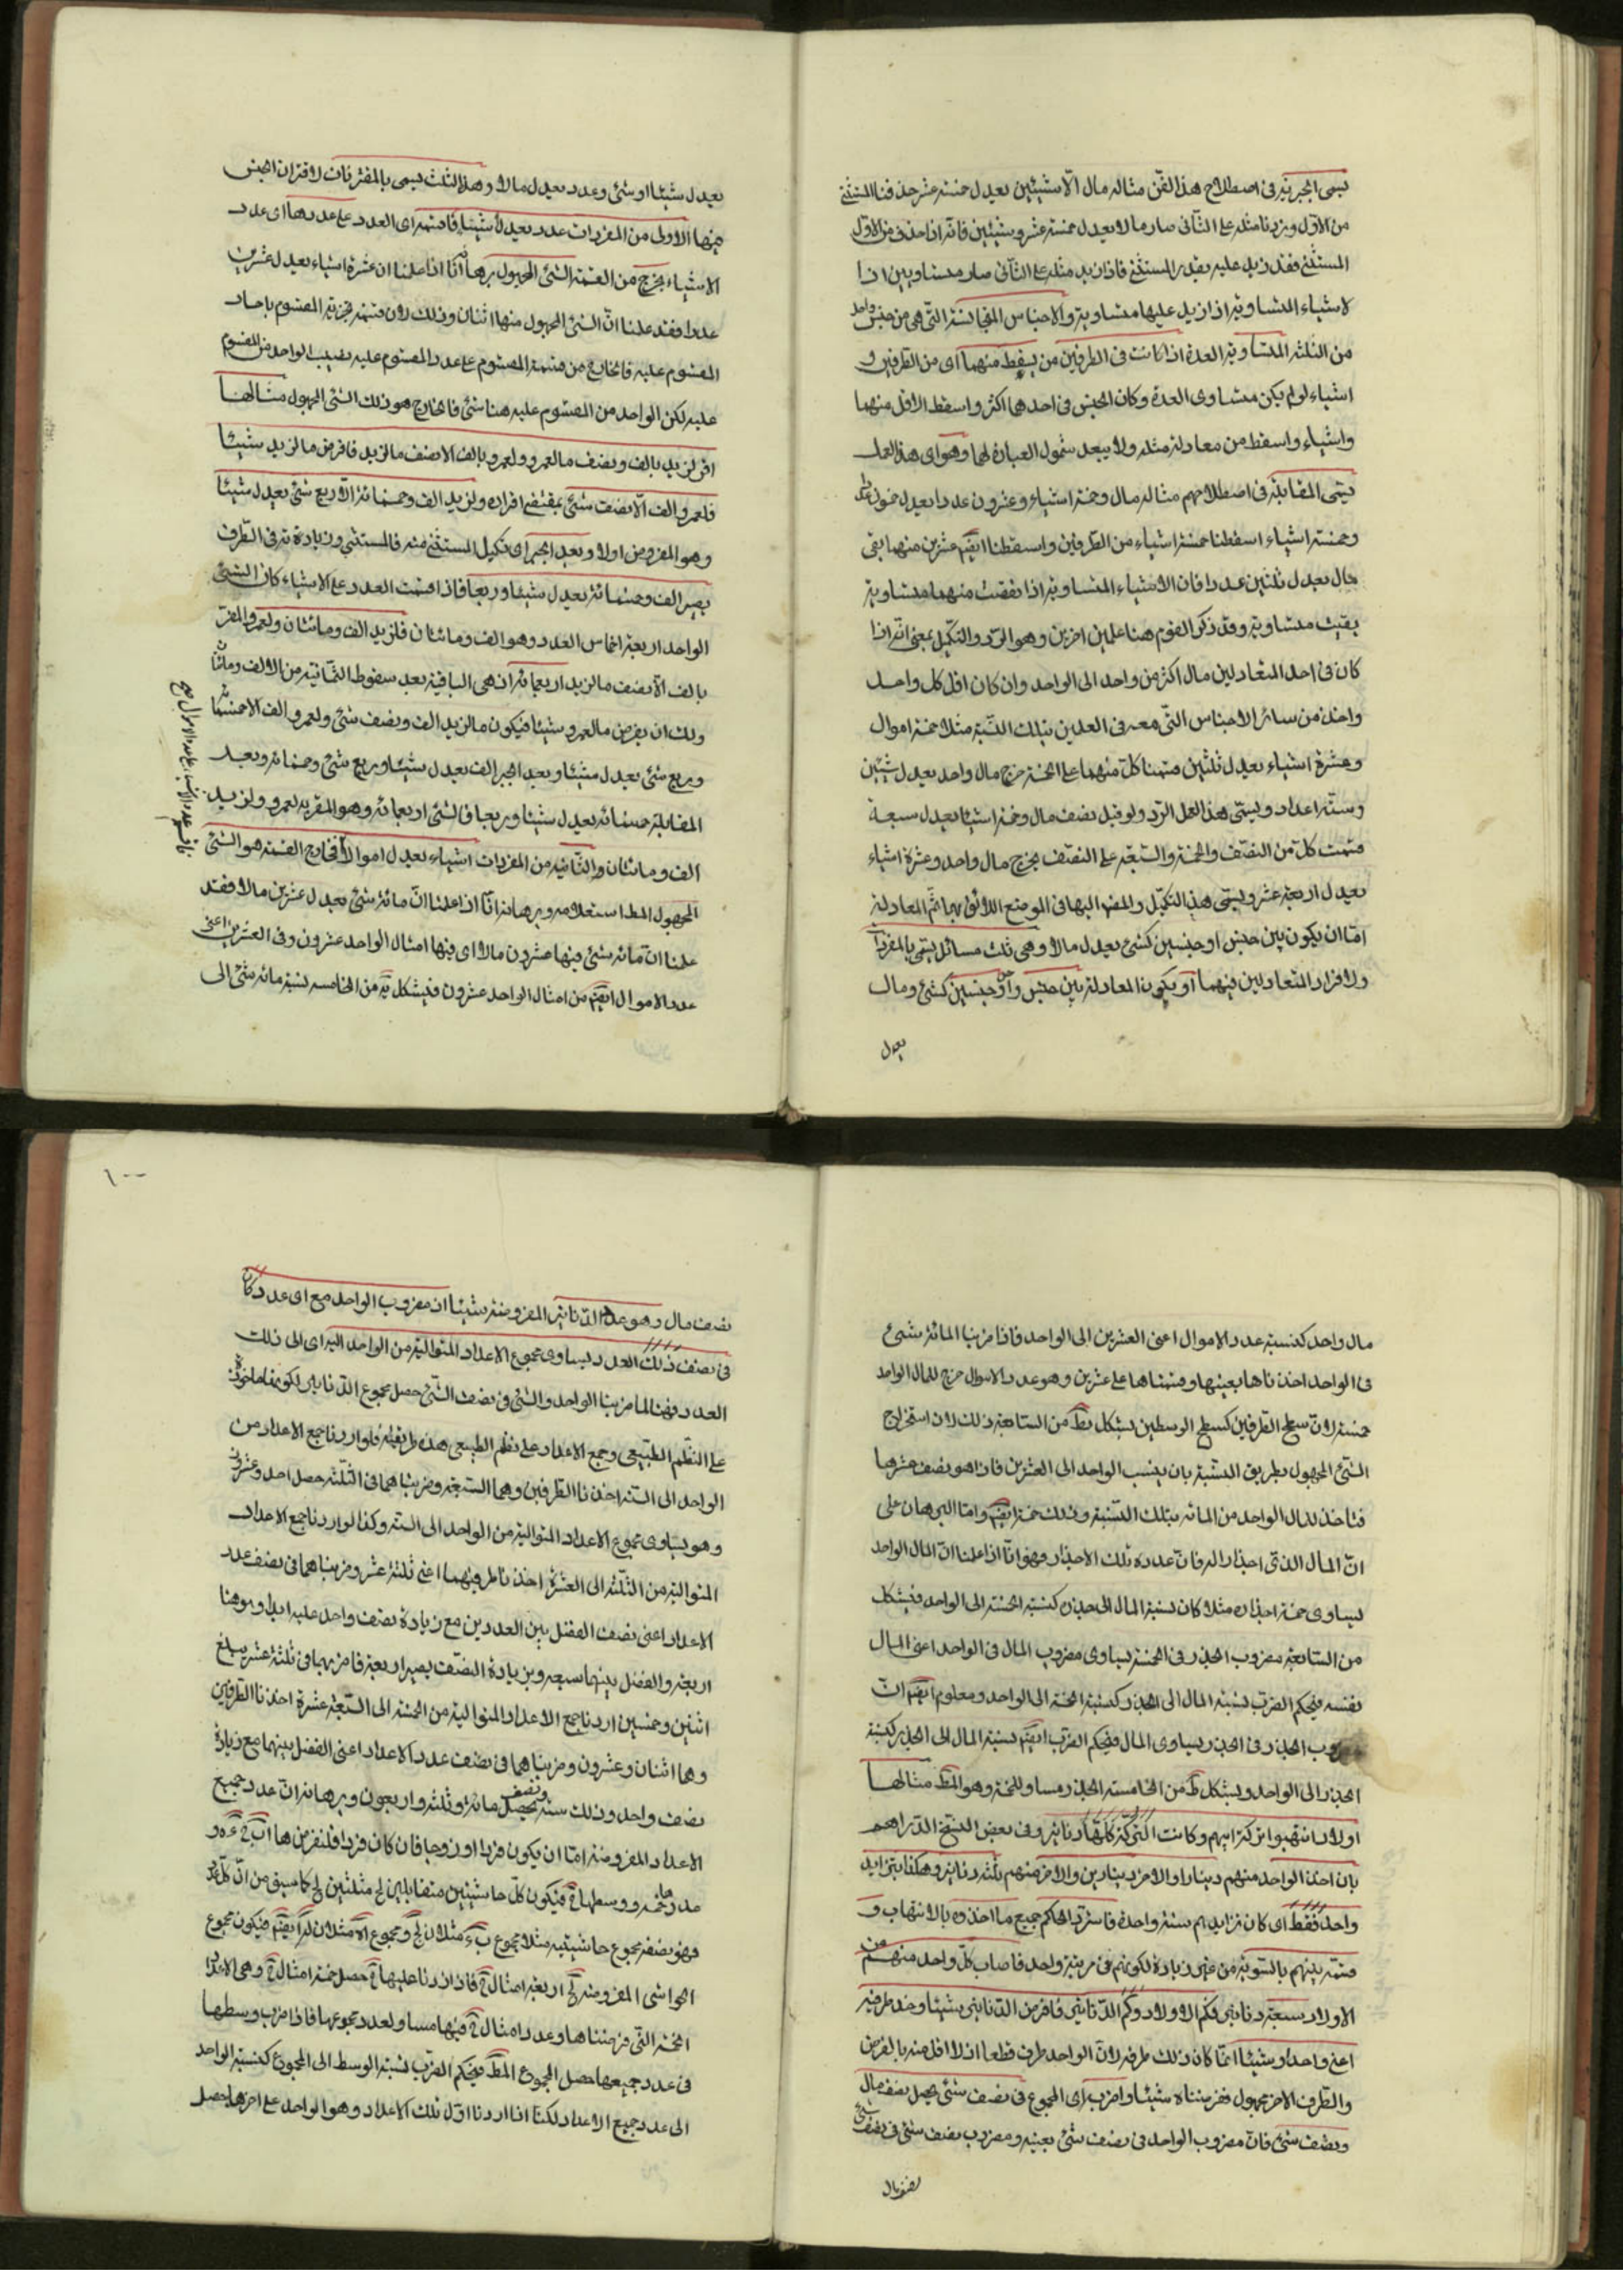 يسمى الجبر يه فى اصطلاح هذا الفن مثاله مال الّا شيئين يعدل خمسة عشر حذفنا المستثنى
من الاول وزدنا مثله على الثانى صار مالا يعدل خمسة عشر وشيئين فانه اذا حذف من الاول
المستثنى فقد زيد عليه بقدر المستثنى فاذا زيد مثله على الثانى صار متساويين اذا
لاشياء المتساوية اذا زيد عليها متساوية والاجناس المتجانسة التى هى من جنس واحد
من الثلثة المتساوية العدة اذا كانت فى الطرفين من يسقط منهما اى من الطرفين و
اشياء لو لم يكن متساوى العدة وكان الجنس فى احدهما اكثر واسقط الاقل منهما
واشياء واسقط من معادله مثله ولا يبعد شمول العبارة لهما وهو اى هذا العمل
يسمى المقابلة فى اصطلاحهم مثاله مال وخمسة اشياء وعشرون عددا يعدل خمسون عددا
وخمسة اشياء اسقطنا خمسة اشياء من الطرفين واسقطنا ايضم عشرين منهما بقى
مال يعدل ثلثين عددا فان الاشياء المتساوية اذا نقصت منهما متساوية
بقيت متساوية وقد ذكر القوم هنا عملين اخرين وهو الرد والتكميل بمعنى انه اذا
كان فى احد المتعادلين مال اكثر من واحد الى الواحد وان كان اقل كل واحد
واخذ من سائر الاجناس التى معه فى العدلين بتلك النسبة مثلا خمسة اموال
وعشرة اشياء يعدل ثلثين قسمنا كل منهما على الخمسة خرج مال واحد يعدل شيئين
وستة اعداد ويسمى هذا العمل الرد ولو قيل نصف مال وخمسة اشياء يعدل سبعة
قسمت كل من النصف والخمسة والسبعة على النصف يخرج مال واحد وعشرة اشياء
يعدل اربعة عشر ويسمى هذا التكميل والمض اليها فى الموضع اللائق بها ثم المعادلة
امّا ان يكون بين جنس او جنسين كشئ يعدل مالا وهى ثلث مسائل يسمى بالمفردات
ولا فراد المتعادلين فيهما او يكون المعادلة بين جنس و جنسين كشئ ومال
يعدل
يعدل شيئا او شئ وعدد يعدل مالا وهذا الثلث يسمى بالمقترنات لاقتران الجنس
فيها الاولى من المفردات عدد يعدل اشيئا فاقسمه اى العدد على عددها اى عدد
الاشياء يخرج من القسمة الشئ المجهول برهانه انّا اذا علمنا ان عشرة اشياء يعدل عشرين
عددا فقد علمنا انّ الشئ المجهول منها اثنان وذلك لان قسمة تجزية المقسوم باحاد
المقسوم عليه فالخارج من قسمة المقسوم على عدد المقسوم عليه نصيب الواحد من المقسوم
عليه لكن الواحد من المقسوم عليه هنا شئ فالخارج هو ذلك الشئ المجهول مثالها
اقر لزيد بالف ونصف ما لعمرو ولعمرو بالف الا نصف ما لزيد فافرض ما لزيد شيئا
فلعمرو الف الّا نصف شئ بمقتضى اقراره ولزيد الف وخمسمائة الّا ربع شئ يعدل شيئا
وهو المفروض اولا وبعد الجبر اى تكميل المستثنى منه فالمستثنى وزيادة ته فى الطرف
يصير الف وخمسمائة يعدل شيئا وربعا فاذا قسمت العدد على الاشياء كان الشئ
الواحد اربعة اخماس العدد وهو الف ومائتان فلزيد الف ومائتان ولعمرو المقر
بالف الّا نصف ما لزيد اربعمائة اذ هى الباقية بعد سقوط الثمانية من الالف ومائتا
ولك ان يفرض ما لعمرو شيئا فيكون ما لزيد الف ونصف شئ ولعمرو الف الا خمسمائة
وربع شئ يعدل شيئا وبعد الجبر الف يعدل شيئا وربع شئ وخمسمائة وبعد
المقابلة خمسمائة يعدل شيئا وربعا فالشئ اربعمائة وهو المقر به لعمرو ولزيد
الف ومائتان والثانية من المفردات اشياء يعدل اموالا فخارج القسمة هو الشئ
المجهول المط استعلامه وبرهانه انّا اذا علمنا انّ مائة شئ يعدل عشرين مالا فقد
علمنا ان مائة شئ فيها عشرون مالا اى فيها امثال الواحد عشرون وفى العشرين اعنى
عدد الاموال ايضم من امثال الواحد عشرون فبشكل يه من الخامسة نسبة مائة شئ الى
مال واحد كنسبة عدد الاموال اعنى العشرين الى الواحد فاذا ضربنا المائة شئ
فى الواحد اخذناها بعينها وقسمناها على عشرين وهو عدد الاموال خرج للمال الواحد
خمسة لان سطح الطرفين كسطح الوسطين بشكل يط من السابعة ذلك لان استخراج
الشئ المجهول بطريق النسبة بان ينسب الواحد الى العشرين فاذا هو نصف عشرها
فتاخذ للمال الواحد من المائة بتلك النسبة وذلك خمسة ايضم وامّا البرهان على
انّ المال الذى اجذارا له فانّ عدده تلك الاجذار فهو انّا اذا علمنا انّ المال الواحد
يساوى خمسة اجذاره مثلا كان نسبة المال الى جذره كنسبة الخمسة الى الواحد فبشكل
من السابعة مضروب الجذر فى الخمسة يساوى مضروب المال فى الواحد اعنى المال
نفسه فبحكم الضرب نسبة المال الى الجذر كنسبة الخمسة الى الواحد ومعلوم ايضم انّ
مضروب الجذر فى الجذر يساوى المال فبحكم الضرب ايضم نسبة المال الى الجذر كنسبة
الجذر الى الواحد وبشكل ط من الخامسة الجذر مساو للخمسة وهو المط مثالها
اولاد انتهبوا تركة ابيهم وكانت التركة كلها دنانير وفى بعض النسخ الدراهم
بان اخذ الواحد منهم دينارا والاخر دينارين والاخر منهم ثلثة دنانير وهكذا يتزايد
واحد فقط اى كان تزايدهم سنة واحدة فاسترد الحاكم جميع ما اخذوه بالانتهاب و
قسمه بينهم بالسوية من غير زيادة لكونهم فى مرتبة واحد فاصاب كل واحد منهم من
الاولاد سبعة دنانير فكم الاولاد وكم الدنانير فافرض الدنانير شيئا وخذ طرفيه
اعنى واحدا وشيئا انّما كان ذلك طرفيه لانّ الواحد طرف قطعا اذ لا اقل منه بالفرض
والطرف الاخر مجهول فرضناه شيئا واضرب اى المجموع فى نصف شئ يحصل نصف مال
ونصف شئ فانّ مضروب الواحد فى نصف شئ بعينه ومضروب نصف شئ فى نصف شئ
نصف مال
١٠٠
نصف مال وهو عدد الدنانير المفروضة شيئا ان مضروب الواحد مع اى عدد كان
فى نصف ذلك العدد يساوى مجموع الاعداد المتوالية من الواحد اليه اى الى ذلك
العدد فهنا لما ضربنا الواحد والشئ فى نصف الشئ حصل مجموع الدنانير لكونها ماخوذة
على النظم الطبيعى وجمع الاعداد على نظم الطبيعى هذه طريقته فلو اردنا جمع الاعداد من
الواحد الى الستة اخذنا الطرفين وهما السبعة وضربناهما فى الثلثة حصل احد وعشرون
وهو يساوى مجموع الاعداد المتوالية من الواحد الى الستة وكذا لو اردنا جمع الاعداد
المتوالية من الثلثة الى العشرة اخذنا طرفيهما اعنى ثلثة عشر وضربناهما فى نصف عدد
الاعداد اعنى نصف الفضل بين العددين مع زيادة نصف واحد عليه ابدا وهو هنا
اربعة والفضل بينهما سبعة وبزيادة النصف يصير اربعة فاضربها فى ثلثة عشر يبلغ
اثنين وخمسين اردنا جمع الاعداد المتوالية من الخمسة الى السبعة عشرة اخذنا الطرفين
وهما اثنان وعشرون وضربناهما فى نصف عدد الاعداد اعنى الفضل بينهما مع زيادة
نصف واحد وذلك ستة ونصف يحصل مائة وثلثة واربعون وبرهانه انّ عدد جميع
الاعداد المفروضة امّا ان يكون فردا او زوجا فان كان فردا فلنفرضها اب ج ء ه و
عدد خمسة ووسطها ج فيكون كل حاشيتين متقابلتين لج مثلتين لج كما سبق من ان كل عدد
فهو نصف مجموع حاشيتيه مثلا مجموع ب ء مثلان لج ومجموع اه مثلان لج ايضم فيكون مجموع
الحواشى المفروضة لج اربعة امثال ج فاذا زدنا عليها ج حصل خمسة امثال ج وهى الاعداد
الخمسة التى فرضناها وعدد امثال ج فيها مساو لعدد مجموعها فاذا ضرب وسطها
فى عدد جميعها حصل المجموع المط فبحكم الضرب نسبة الوسط الى المجموع كنسبة الواحد
الى عدد جميع الاعداد لكنّا اذا اردنا اوّل تلك الاعداد وهو الواحد على اخرها حصل